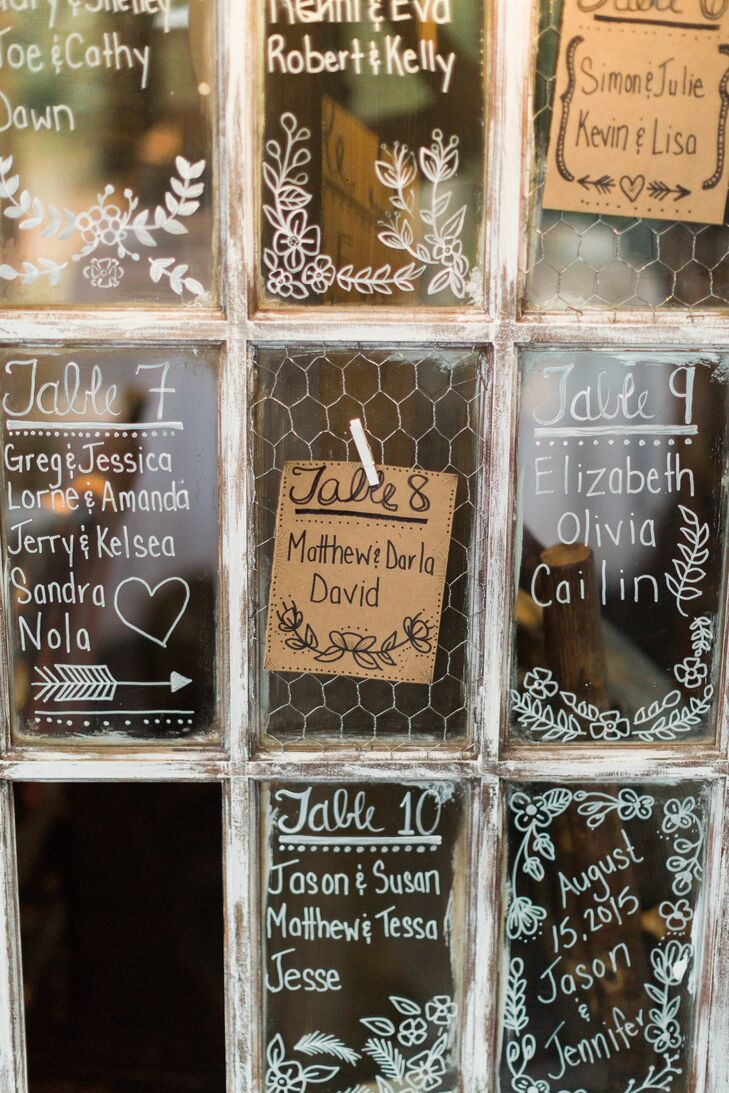 & Shelley
Joe & Cathy
Dawn
& Eva
Robert & Kelly
Simon & Julie
Kevin & Lisa
Table 7
Greg & Jessica
Lorne & Amanda
Jerry & Kelsea
Sandra
Nola
Table 8
Matthew & Darla
David
Table 9
Elizabeth
Olivia
Cailin
Table 10
Jason & Susan
Matthew & Tessa
Jesse
August
15, 2015
Jason
&
Jennifer